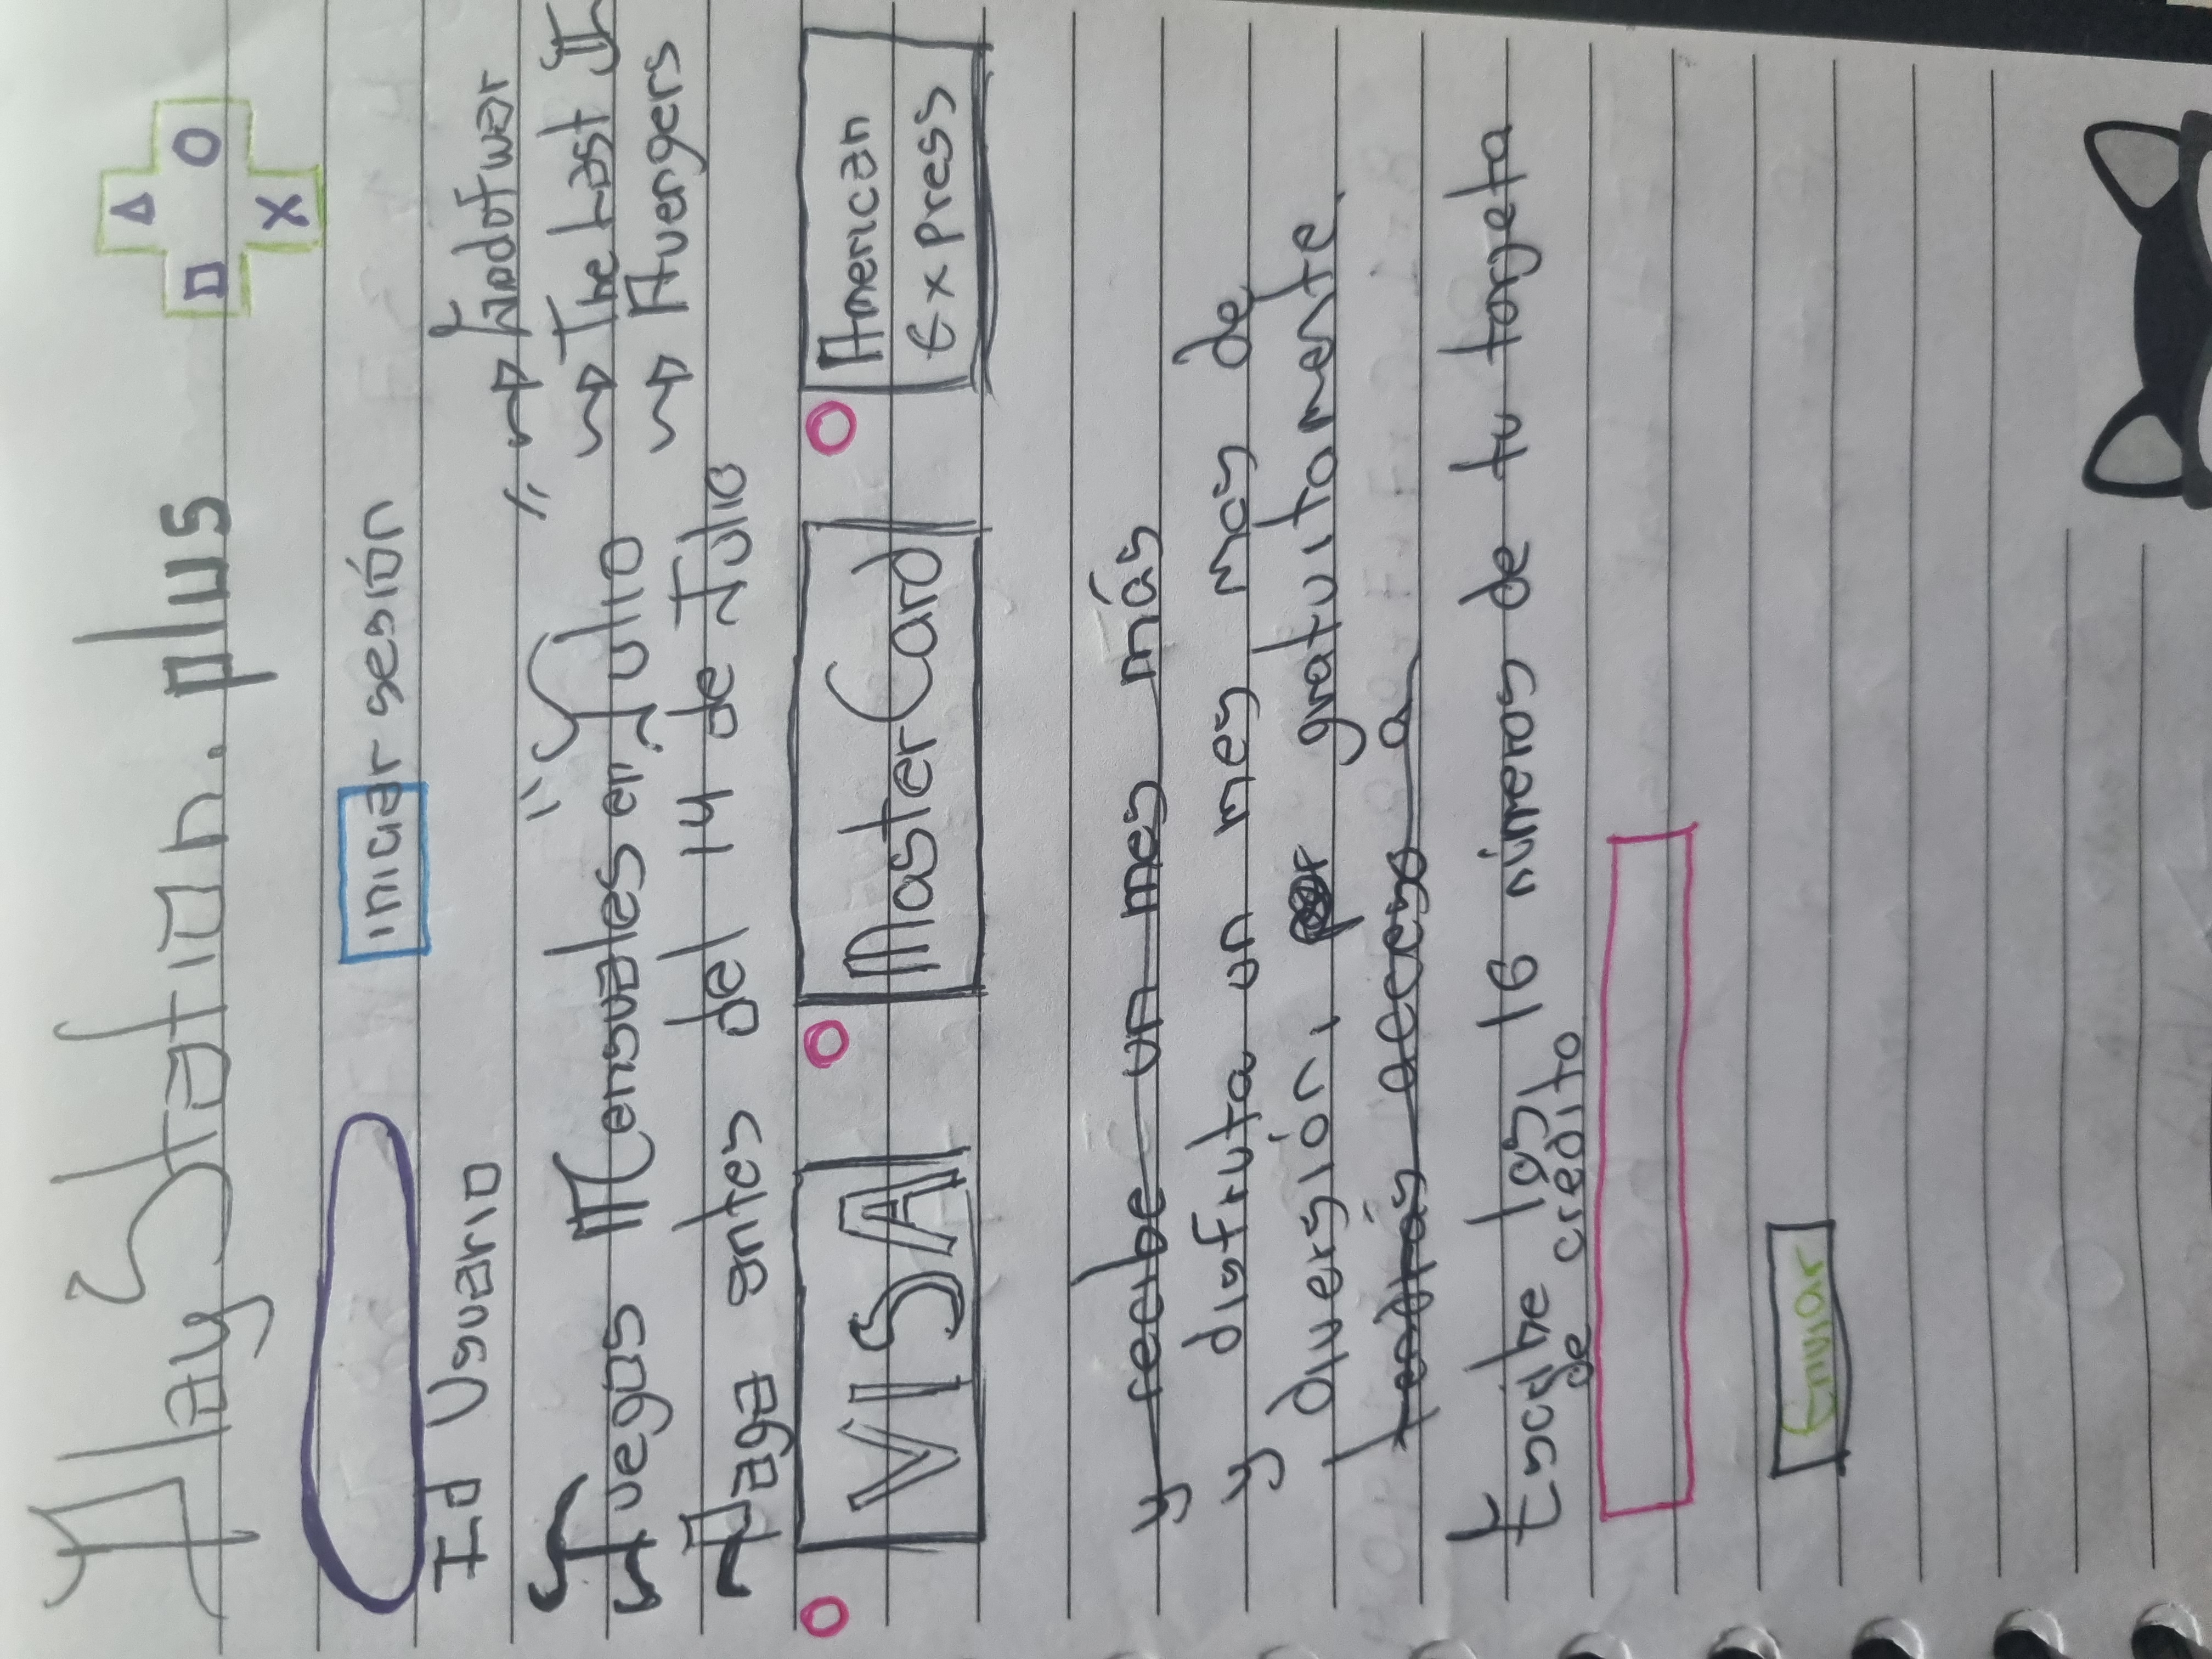 PlayStation. plus
Δ
□ O
X
iniciar sesión
Id Usuario
Juegos Mensuales en "Julio" → Godofwar
→ The Last II
→ Avengers
Paga antes del 14 de Julio
VISA MasterCard American
Express
y recibe un mes más
y disfruta un mes mas de
diversión, por gratuitamente.
tendrás acceso a
Escribe los 16 números de tu targeta
de crédito
Enviar